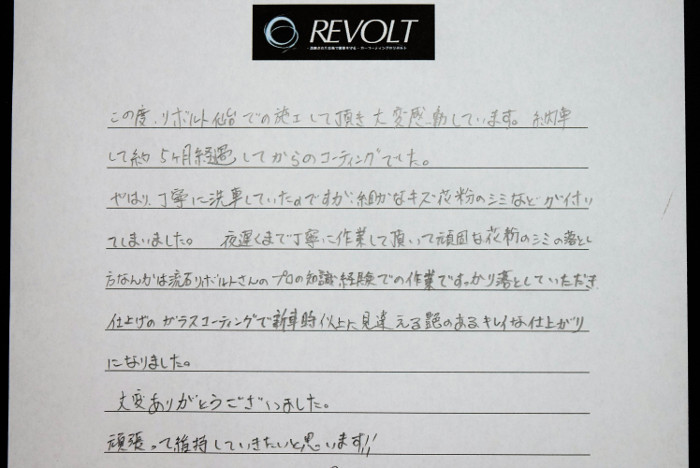 REVOLT
この度、リボルト仙台での施工して頂き大変感動しています。納車
して約5ヶ月経過してからのコーティングでした。
やはり丁寧に洗車していたのですが、細かなキズ花粉のシミなどが付い
てしまいました。 夜遅くまで丁寧に作業して頂いて頑固な花粉のシミの落とし
方なんかは流石リボルトさんのプロの知識、経験での作業ですっかり落としていただき
仕上げのガラスコーティングで新車時以上に見違える艶のあるキレイな仕上がり
になりました。
大変ありがとうございました。
頑張って維持していきたいと思います!!